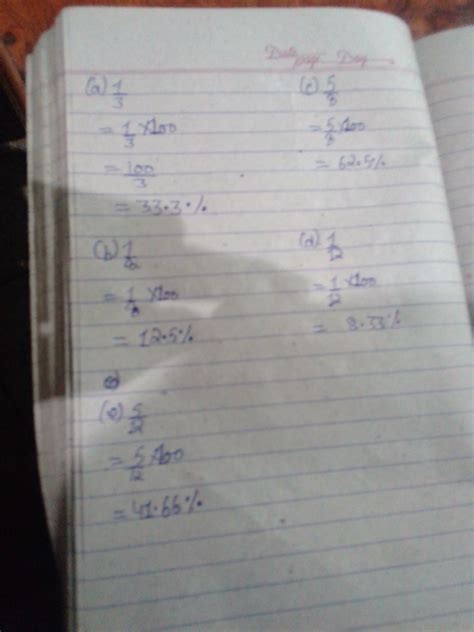 Date
page Day
(a) 1/3
= 1/3 × 100
= 100/3
= 33.3%
(b) 1/8
= 1/8 × 100
= 12.5%
(c) 5/8
= 5/8 × 100
= 62.5%
(d) 1/12
= 1/12 × 100
= 8.33%
(e) 5/12
= 5/12 × 100
= 41.66%